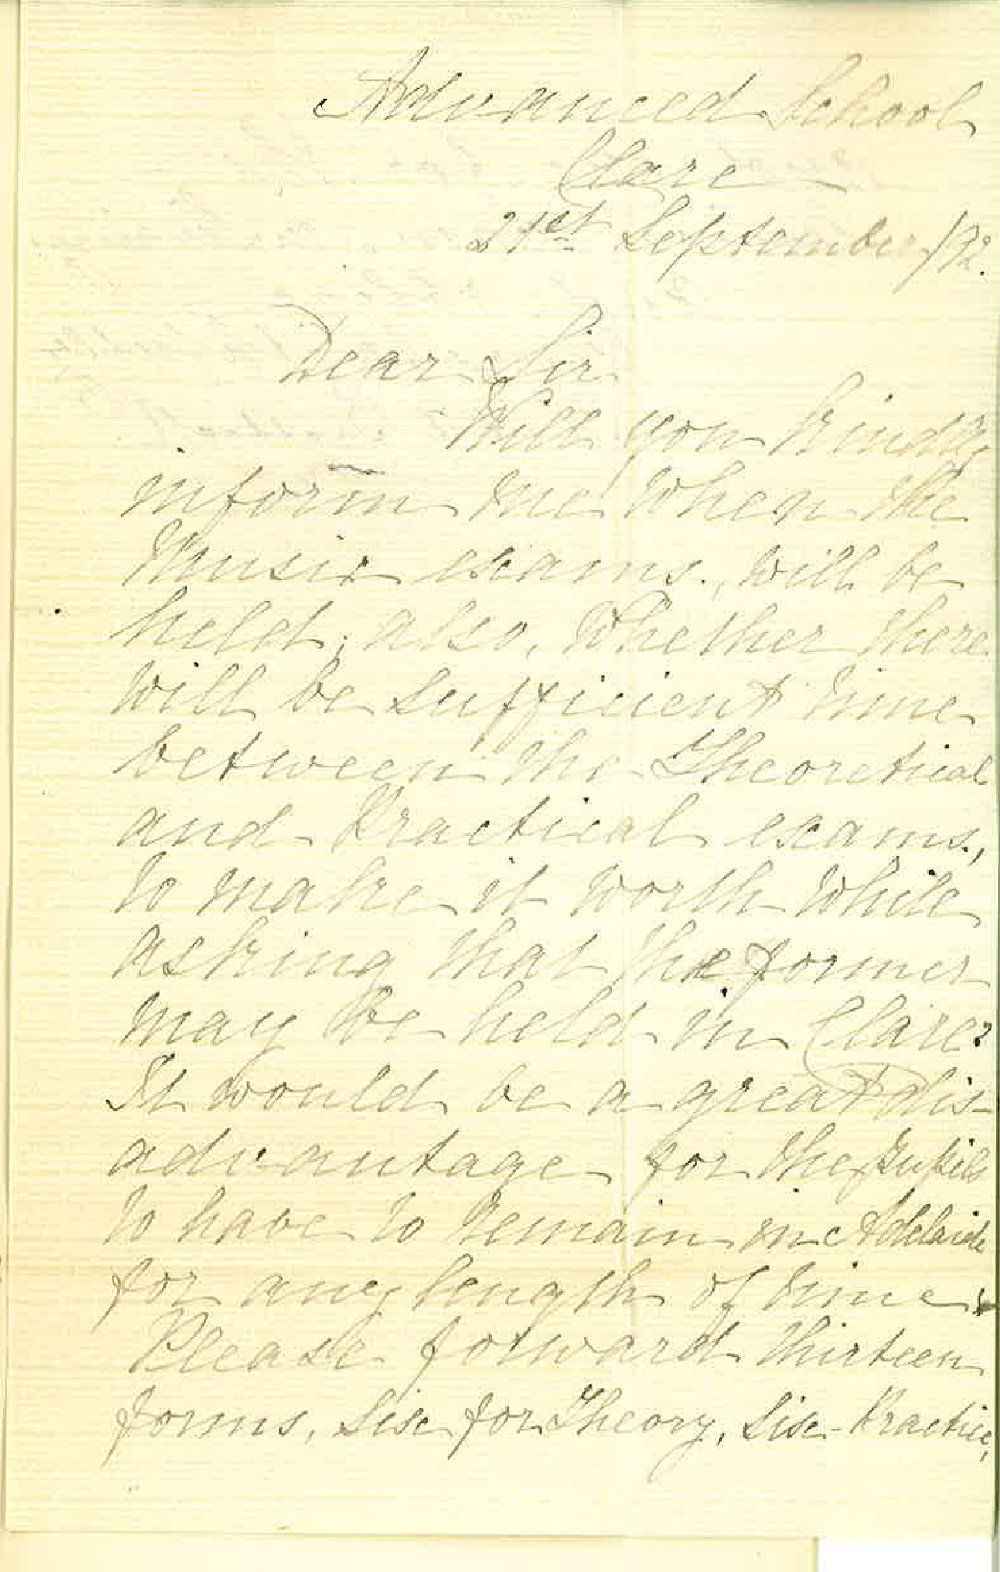 Advanced School
Clare
21st September /92.
Dear Sir
Will you kindly
inform me when the
Music exams., will be
held; also, whether there
will be sufficient time
between the Theoretical
and Practical exams.,
to make it worth while
asking that the former
may be held in Clare?
It would be a great dis-
advantage for the pupils
to have to remain in Adelaide
for any length of time.
Please forward thirteen
forms, six for Theory, six-Practice,